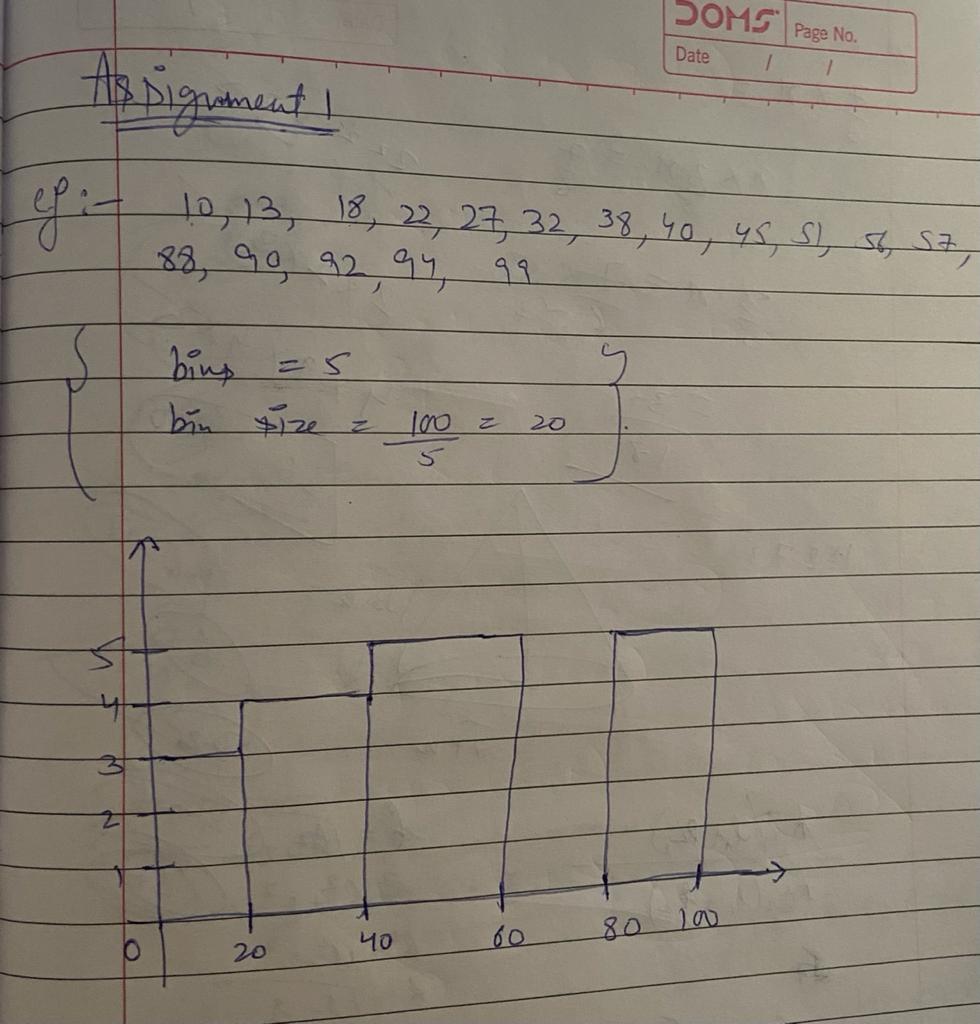 DOMS Page No.
Date / /
Assignment 1
eg :- 10, 13, 18, 22, 27, 32, 38, 40, 45, 51, 56, 57,
88, 90, 92, 94, 99
bins = 5
bin size = 100/5 = 20
5
4
3
2
1
0 20 40 60 80 100